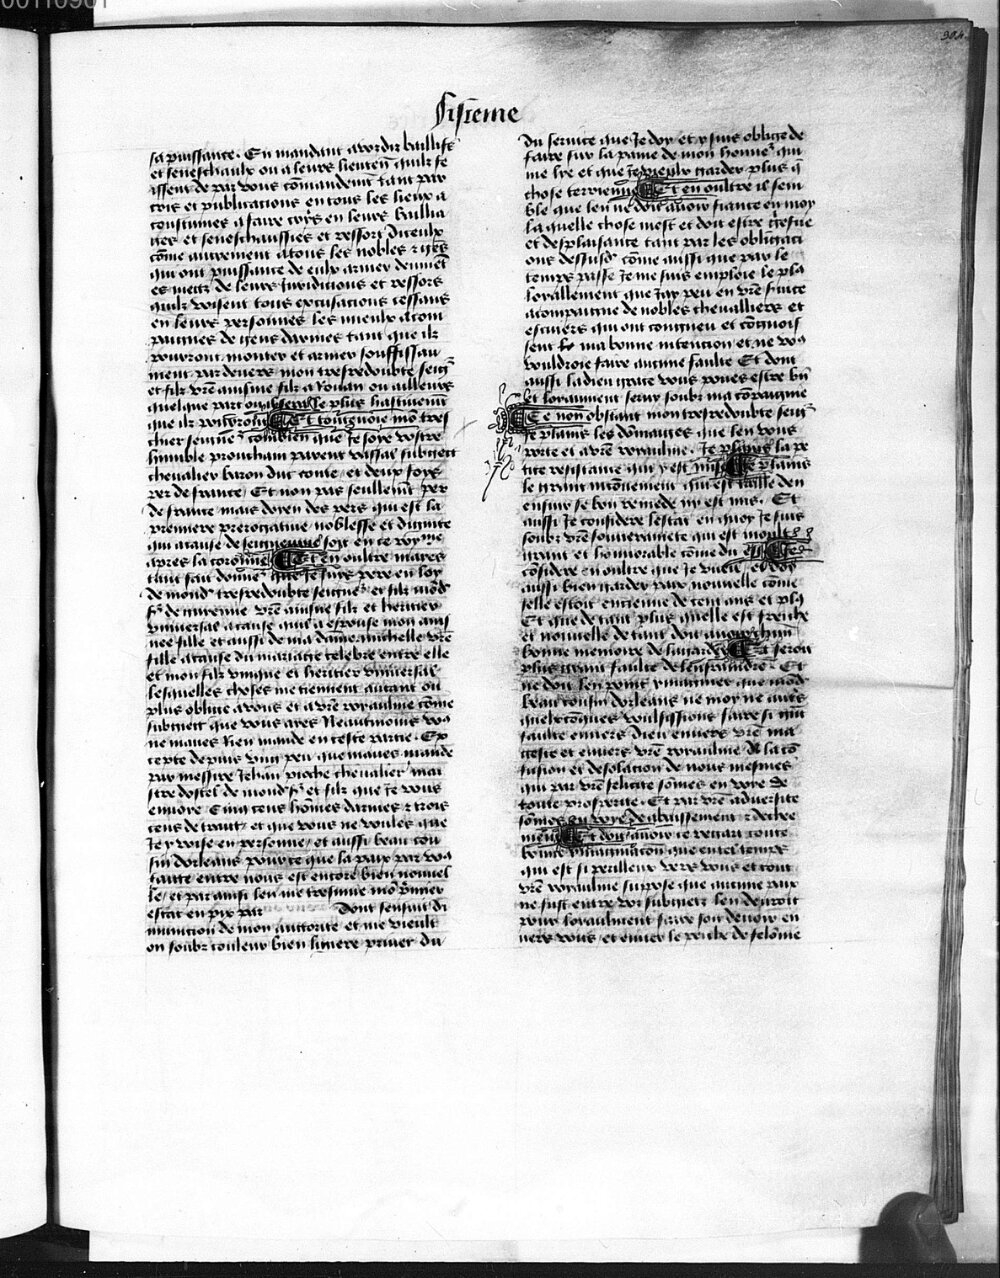 00110901
304
Sisieme
sa puissance. En mandant a vor diz baillifz
et seneschaulx ou a leurs lieuten quilz fe
issent de par vous comandement tant par
cris et publicacions en tous les lieux a
coustumes a faire cris en leurs baillia
ges et seneschaussies et ressort diceulx
come autrement a tous les nobles z gens
qui ont puissance de eulx armer demour
es mectz de leurs juridicions et ressors
quilz voisent tous excusacions cessans
en leurs personnes les mieulx acom
paignes de gens darmes tant que ilz
pourront monter et armer souffissau
ment par devers mon tresredoubte seigr
et filz vre aisne filz a Rouan ou ailleurs
quelque part ou il sera le plus hastivemt
que ilz pourront Et tesmoigne mo tres
chier seigneur combien que Je soye vostre
humble prouchain parent vassal subgiect
chevalier baron duc conte et deux foys
per de france Et non pas seullement per
de france mais doyen des pers qui est la
premiere prerogative noblesse et dignite
qui a cause de seigneurie soit en ce royme
apres la coronne Et en oultre maves
tant fait donneur que Je suis pere en loy
de mond tresredoubte seigneur et filz mod
sr de guienne vre aisne filz et heritier
universal a cause quil a espouse mon ais
nee fille et aussi de ma dame michelle vre
fille a cause du mariage celebre entre elle
et mon filz unique et heritier universal
lesquelles choses me tiennent autant ou
plus oblige a vous et a vre royaulme come
subgiect que vous ayes Neantmoins vo9
ne maves Rien mande en ceste partie. Ex
cepte depuis ung peu que maves mande
par messire Jehan pioche chevalier mai
stre dostel de mond sr et filz que Je vous
envoye Cinq cens homes darmes z trois
cens de trait et que vous ne voules que
Je y voise en personne et aussi beau cou
sin dorleans pource que la paix par vo9
faicte entre nous est encore bien nouvel
le et par ainsi len me tresmue mo premier
estat en pix par Dont sensuit di
minucion de mon auctorite et me vieult
on soubz couleur bien ligiere priver du
Du service que Je doy et y suis oblige de
faire sur la paine de mon honneur qui
me lye et que Je vieulx garder plus q
chose terrienne Et en oultre il sem
ble que len ne doit avoir fiance en moy
la quelle chose mest et doit estre griefue
et desplaisante tant par les obligaci
ons dessusd come aussi que par le
temps passe Je me suis emploie le plus
loyallement que Jay peu en vre service
acompaigne de nobles chevalliers et
escuiers qui ont congneu et cognois
sent la ma bonne intencion et ne vo9
vouldroie faire aucune faulte Et dont
aussi la dieu grace vous poues estre bn
et loyaument servy soubz ma compaignie
Ce non obstant mon tresredoubte seigr
Je plains les domaiges que len vous
porte et a vre royaulme. Je plains la pe
tite resistance qui y est mise Je plains
le grant inconvenient qui est taille den
ensuir se bon remede ny est mis. Et
aussi Je considere lestat en quoy Je suis
soubz vre souverainete qui est moult
grant et honnorable come du
considere en oultre que Je vueil et doy
aussi bien garder paix nouvelle come
selle estoit encienne de cent ans et pl9
Et que de tant plus quelle est fresche
et nouvelle de tant doit avoir chun
bonne memoire de la garder Et seroit
plus grant faulte de lenfraindre. Et
ne doit len point ymaginer que mond
beau cousin dorleans ne moy ne autres
quelzconques voulsissions faire si grant
faulte envers Dieu envers vre ma
geste et envers vre royaulme A la co
fusion et desolacion de nous mesmes
qui par vre felicite somes en voye de
toute prosperite. Et par vre adversite
somes en voye de abaissement z decheе
ment Et doit avoir ce regart toute
bonne ymaginacion que en tel temps
qui est si perilleux vers vous et tout
vre royaulme suppose que aucune paix
ne fust entre vos subgietz len devroit
pour loyaulment faire son devoir en
vers vous et eviter le peiche de felonie